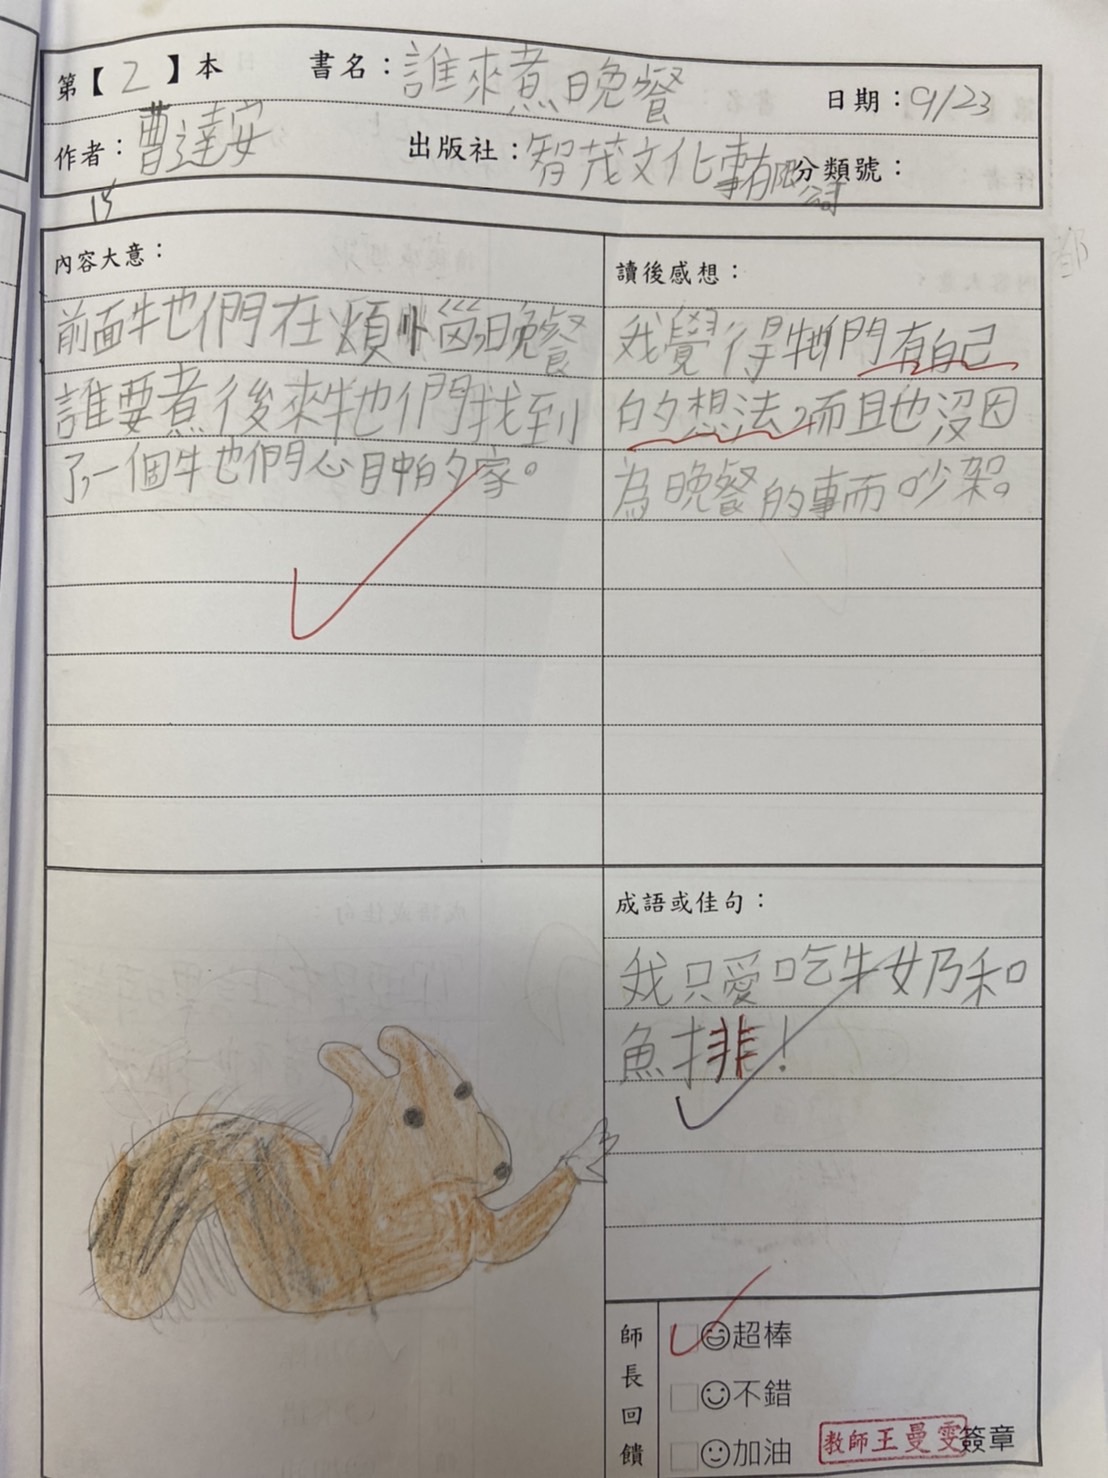 第【2】本 書名：誰來煮晚餐 日期：9/23
作者：曹達安 出版社：智茂文化事有限公司 分類號：
內容大意：
前面牠們在煩惱，晚餐
誰要煮後來牠們找到
了，一個牠們心目中的家。
讀後感想：
我覺得牠們有自己
的想法，而且也沒因
為晚餐的事而吵架。
成語或佳句：
我只愛吃牛奶和
魚排！
師長回饋
超棒
不錯
加油
教師王曼雯簽章